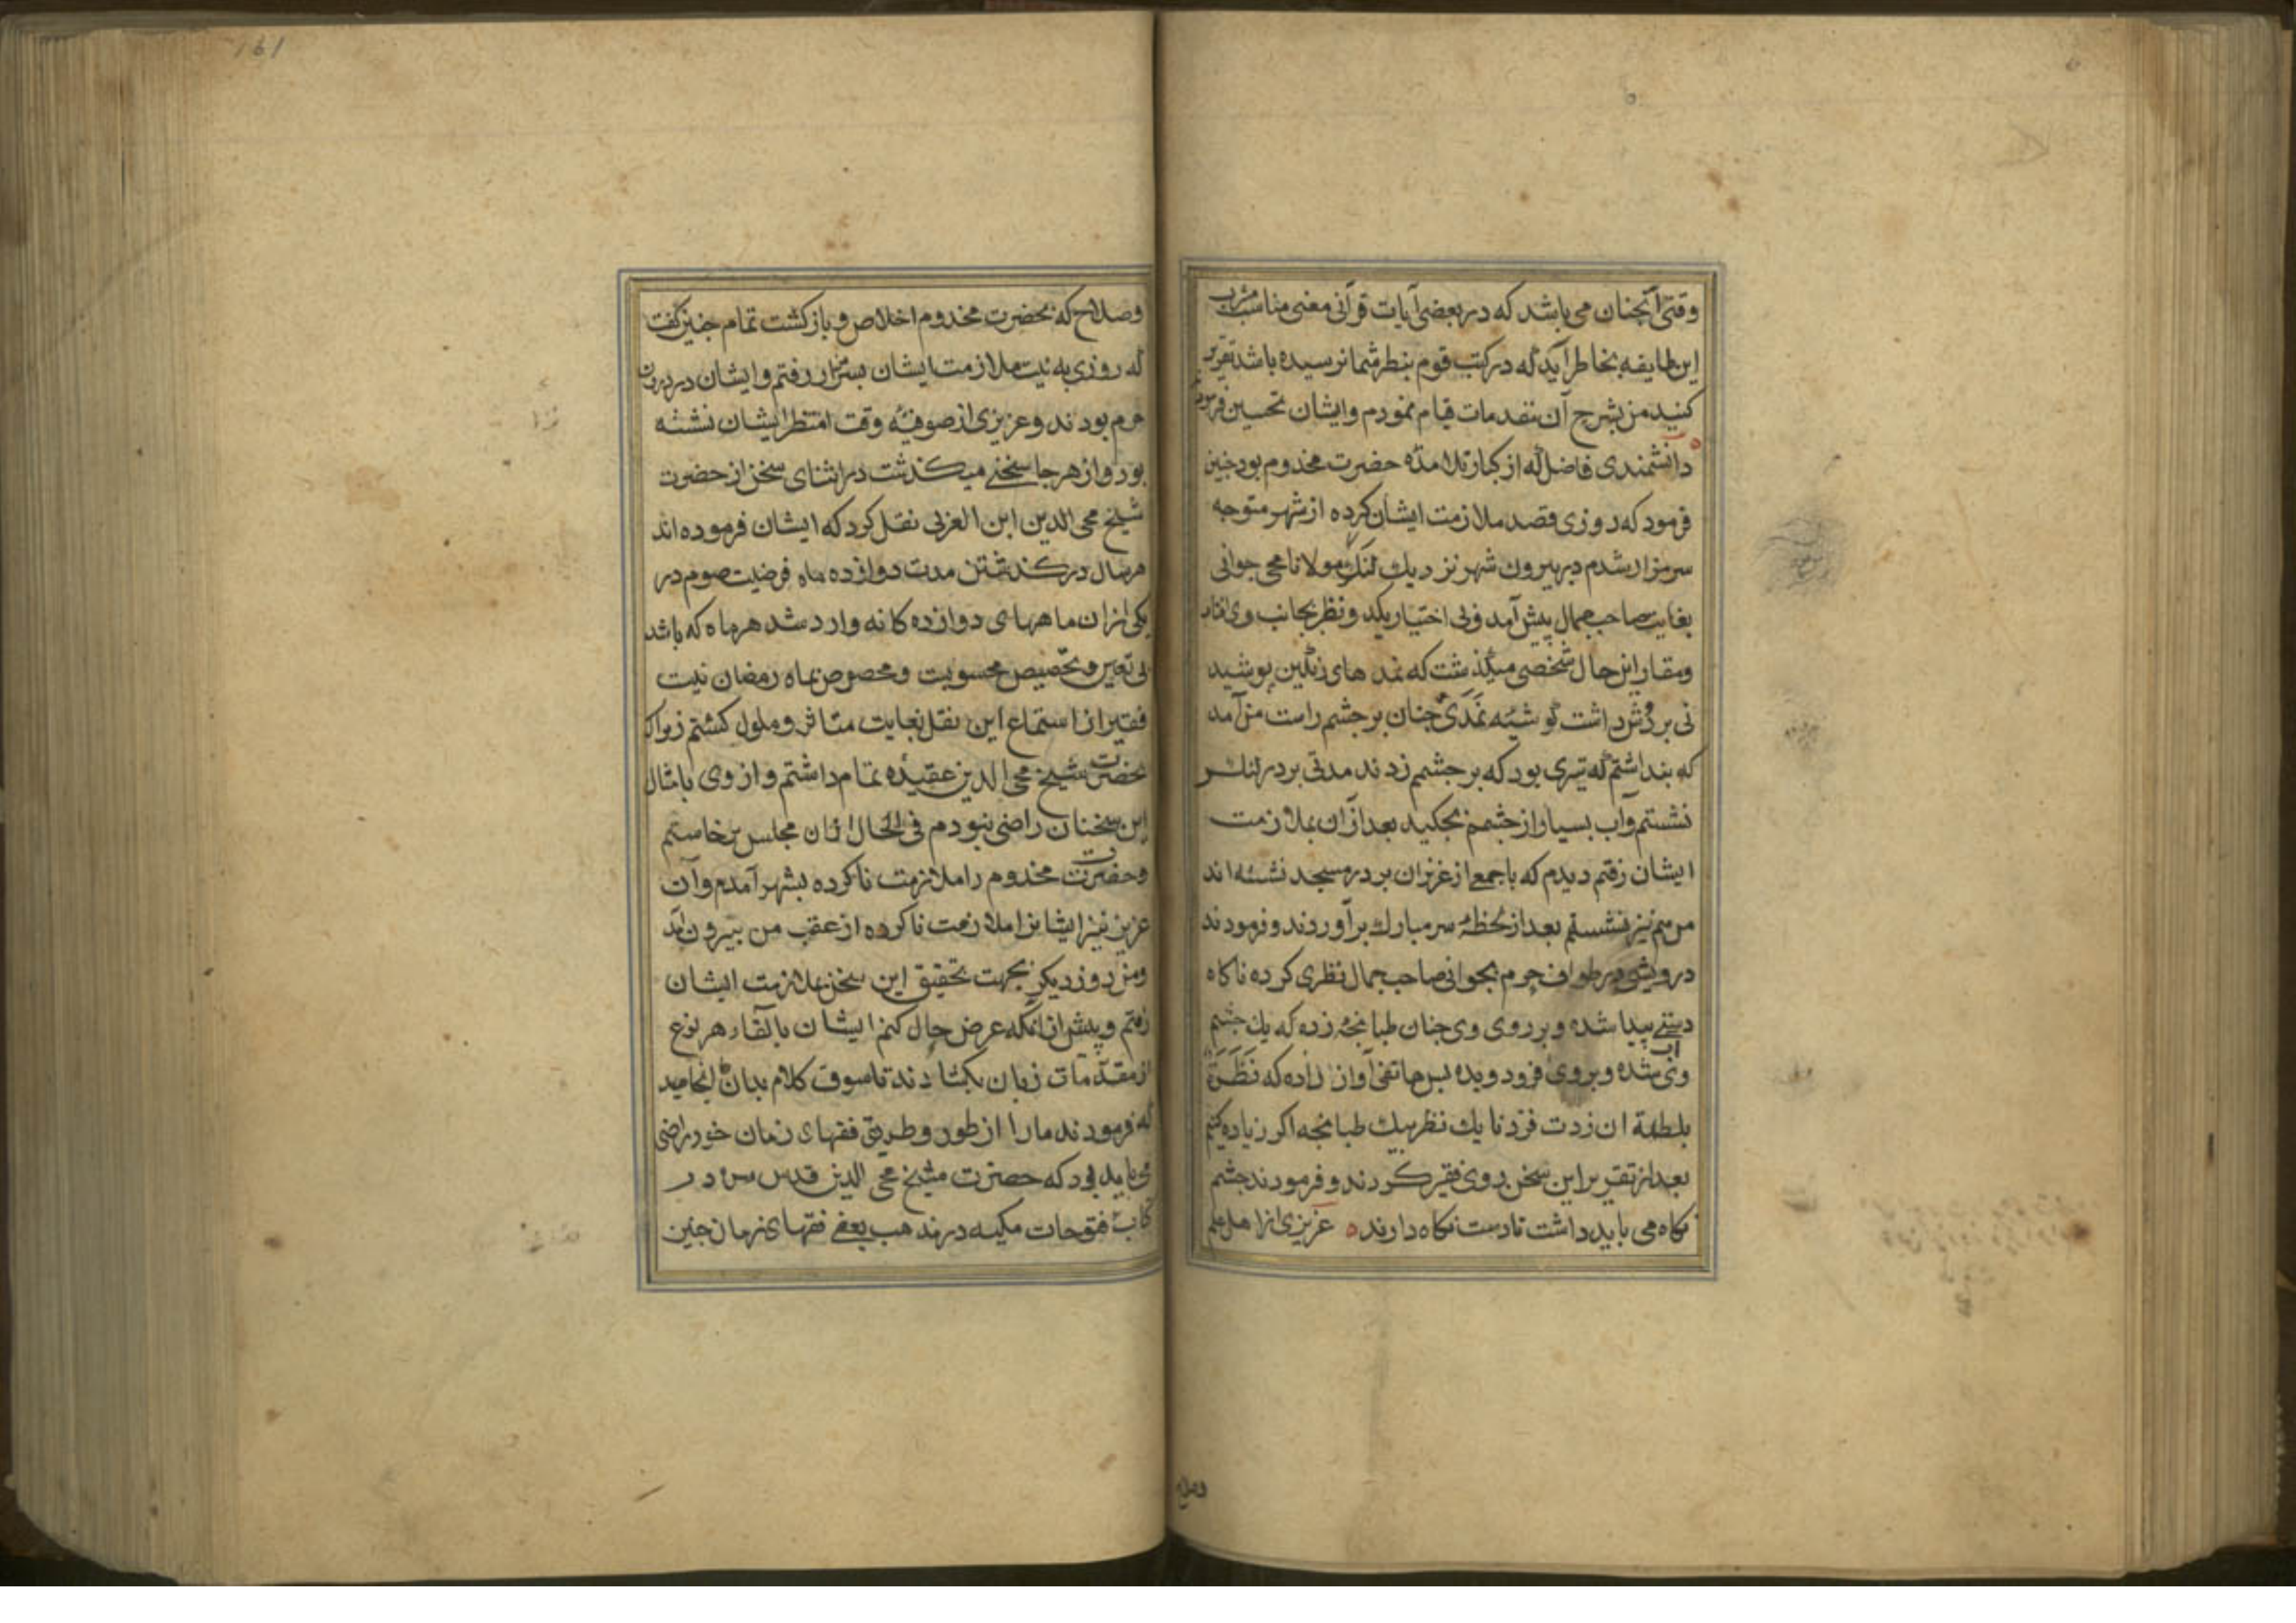 وقتی آنچنان می باشد که در بعضی آیات قرآنی معنی مناسب مشرب
این طایفه بخاطر آید که در کتب قوم بنظر شما نرسیده باشد تقریر
کنید من بشرح آن مقدمات قیام نمودم وایشان تحسین فرمودند
دانشمندی فاضل که از کبار تلامذه حضرت مخدوم بود جنین
فرمود که روزی قصد ملازمت ایشان کرده از شهر متوجه
سر مزار شدم در بیرون شهر نزدیک لنکر مولانا محی جوانی
بغایت صاحب جمال پیش آمد و بی اختیار یکد ونظر بجانب وی افتاد
ومقارن حال شخصی میگذشت که نمدهای رنگین پوشید
نی بر دُش داشت گوشهٔ نَمَدیَ جنان بر جشم راست من آمد
که بنداشتم که تیری بود که بر جشمم زدند مدتی بر در لنکر
نشستم وآب بسیار از جشمم بجکید بعد ازآن بملازمت
ایشان رفتم دیدم که با جمعی از عزیزان بر در مسجد نشسته اند
من هم نیز نشستم بعد از لحظهٔ سر مبارک برآوردند و فرمودند
درویشی در طواف حرم بجوانی صاحب جمال نظری کرده ناکاه
دستی پیدا شده و بر روی وی جنان طبانجهٔ زده که یک جشم
وی آب شده و بر روی فرود ویده بس هاتفی آواز داده که نَظَرَة
بلطمة ان زدت فزدنا یک نظر بیک طبانجه اکر زیاده کنیم
بعد از تقریر این سخن روی بفقیر کردند و فرمودند جشم
نکاه می باید داشت تا دست نکاه دارند ه عزیزی از اهل علم
وصلاح
وصلاح که بحضرت مخدوم اخلاص و بازکشت تمام جنین کفت
که روزی به نیت ملازمت ایشان بسر مزار رفتم و ایشان در درون
حرم بودند و عزیزی از صوفیهٔ وقت انتظر ایشان نشسته
بود و از هر جا سخنی میکذشت در اثنای سخن از حضرت
شیخ محی الدین ابن العربی نقل کرد که ایشان فرموده اند
هر سال در کذشتن مدت دوازده ماه فرضیت صوم در
یکی ازان ماههای دوازده کانه وارد شد هر ماه که باشد
بی تعیین و تخصیص محسوبست و مخصوص بماه رمضان نیت
فقیر از استماع این نقل بغایت متاثر و ملول کشتم زیراک
بحضرت شیخ محی الدین عقیدهٔ تمام داشتم و از وی بامثال
این سخنان راضی نبودم فی الحال ازان مجلس برخاستم
وحضرت مخدوم را ملازمت ناکرده بشهر آمدم وآن
عزیز نیز ایشانرا ملازمت ناکرده از عقب من بیرون آمد
ومن روز دیکر بجهت تحقیق این سخن بملازمت ایشان
رفتم و پیش ازآنکه عرض حال کنم ایشان بالقاء هر نوع
از مقدّمات زبان بکشادند تا سوق کلام بدان انجامید
که فرمودند مارا از طور و طریق فقهای زمان خود راضی
می باید بود که حضرت شیخ محی الدین قدس سره در
کتاب فتوحات مکیه در مذهب بعضی فقهای زمان جنین
161